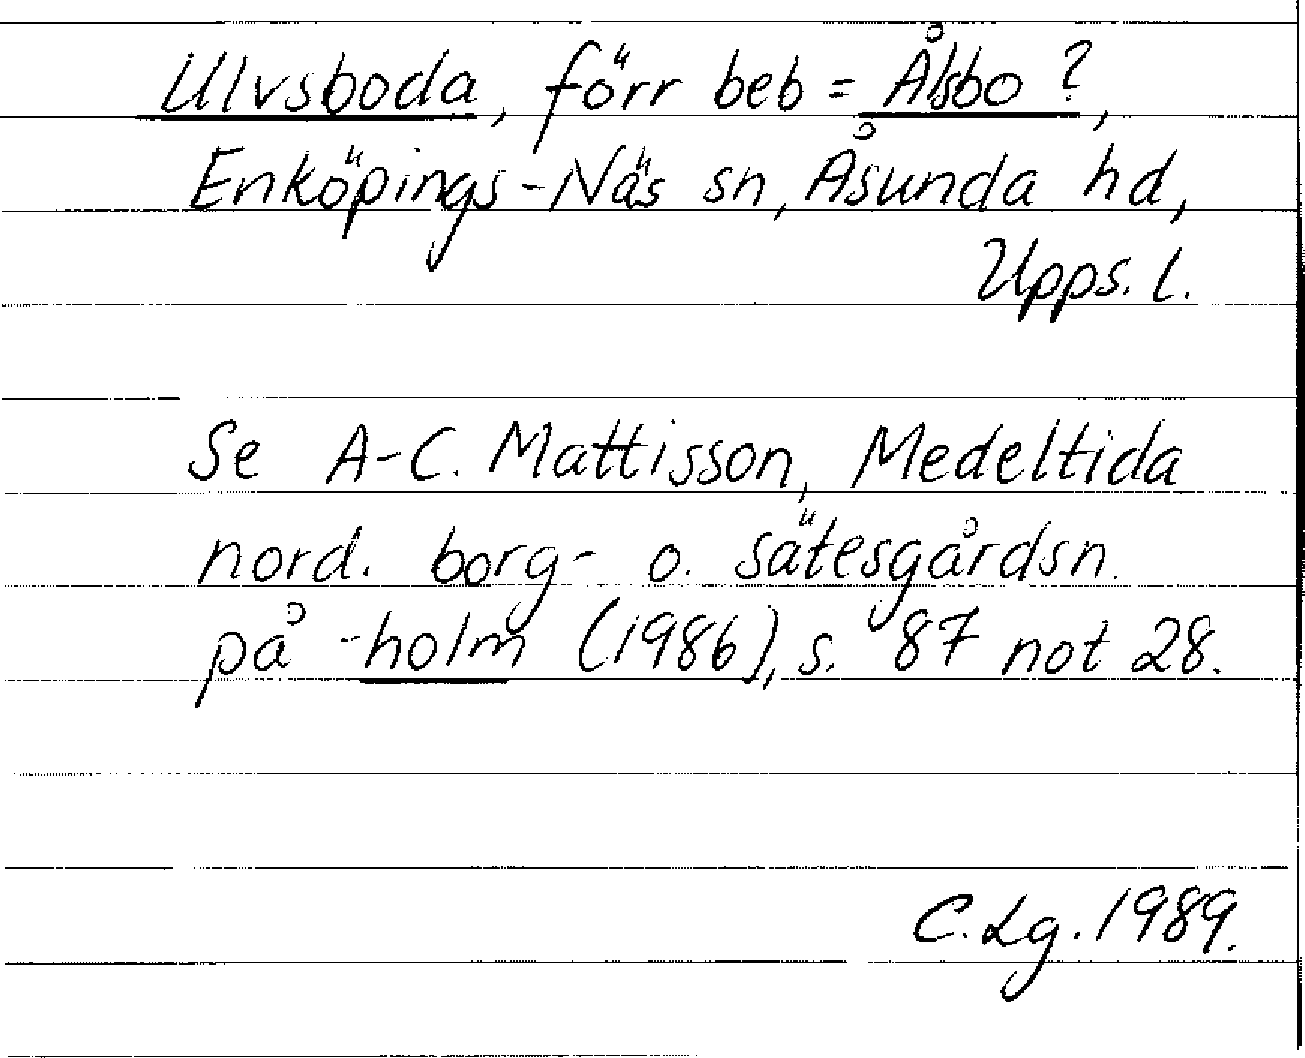 Ulvsboda, förr beb = Ålsbo?,
Enköpings-Näs sn, Åsunda hd,
Upps. l.
Se A-C. Mattisson, Medeltida
nord. borg- o. sätesgårdsn.
på -holm (1986), s. 87 not 28.
C. Lg. 1989.